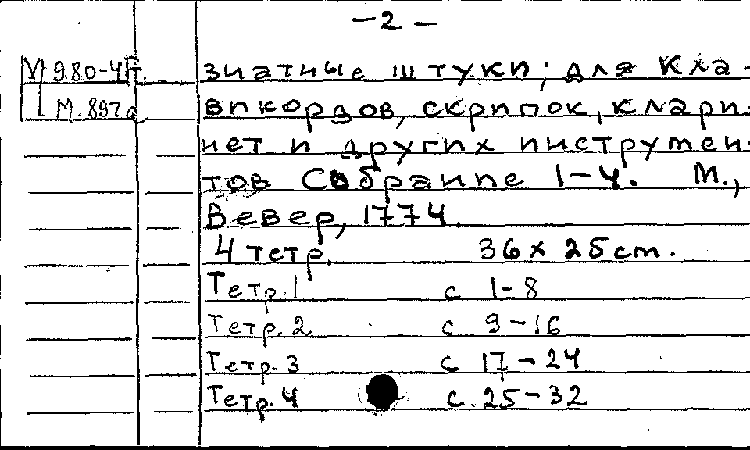 — 2 —
М 980-4г. знатные штуки; для Кла-
М. 897а викордов, скрипок, клари-
нет и других инструмен-
тов Собрание 1-4. М.,
Вевер, 1774
4 тетр. 36 х 25 cm.
Тетр. 1 с 1-8
Тетр. 2 с. 9-16
Тетр. 3 с 17-24
Тетр. 4 с. 25-32